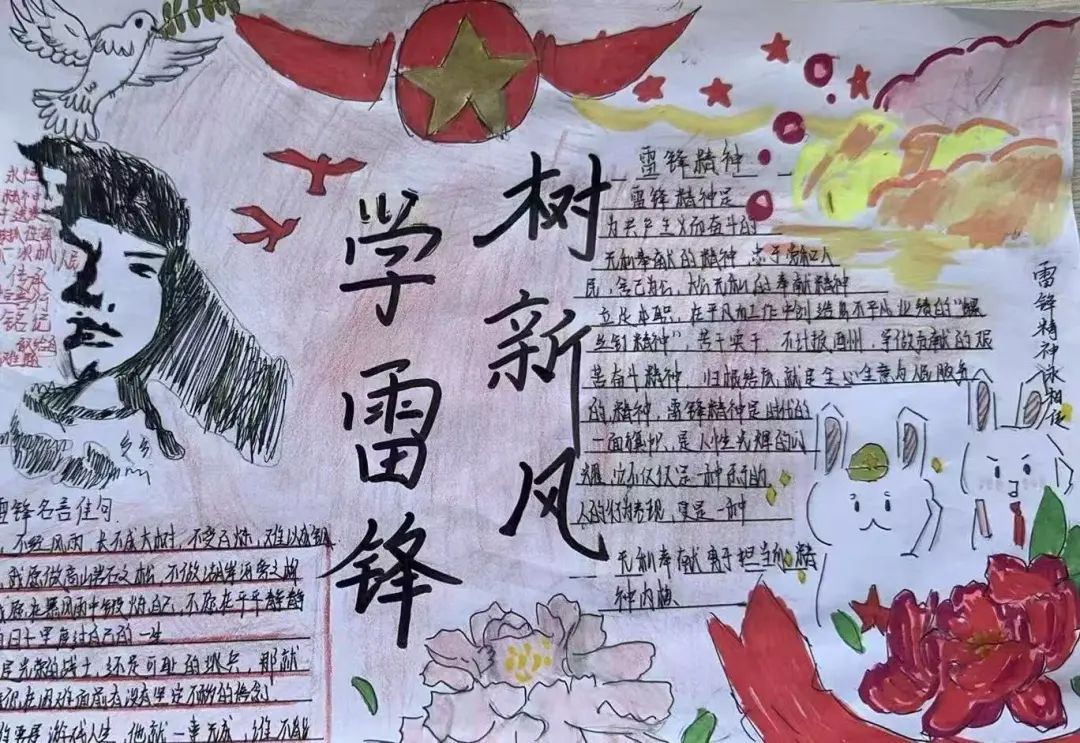 学雷锋
树新风
雷锋精神
雷锋精神是
为共产主义而奋斗的
无私奉献的精神，忠于党和人
民，舍己为公，大公无私的奉献精神
立足本职，在平凡的工作中创造出不平凡业绩的“螺
丝钉精神”，苦干实干，不计报酬，争做贡献的艰
苦奋斗精神，归根结底就是全心全意为人民服务
的精神，雷锋精神是时代的
一面旗帜，是人生光辉的
它不仅仅是一种
人的行为表现，更是一种
无私奉献勇于担当的精
神内涵
雷锋精神永相传
永恒
精神
传承
铭记
人民
雷锋名言佳句
不经风雨，长不成大树，不受百炼，难以成钢
我愿做高山岩石之松，不做湖岸河旁之柳
我愿在暴风雨中锻炼自己，不愿在平平静静
的日子里度过自己的一生
是光荣的战士，还是可耻的逃兵，那就
在困难面前有没有坚定不移的信念
谁要是游戏人生，他就一事无成，谁不能